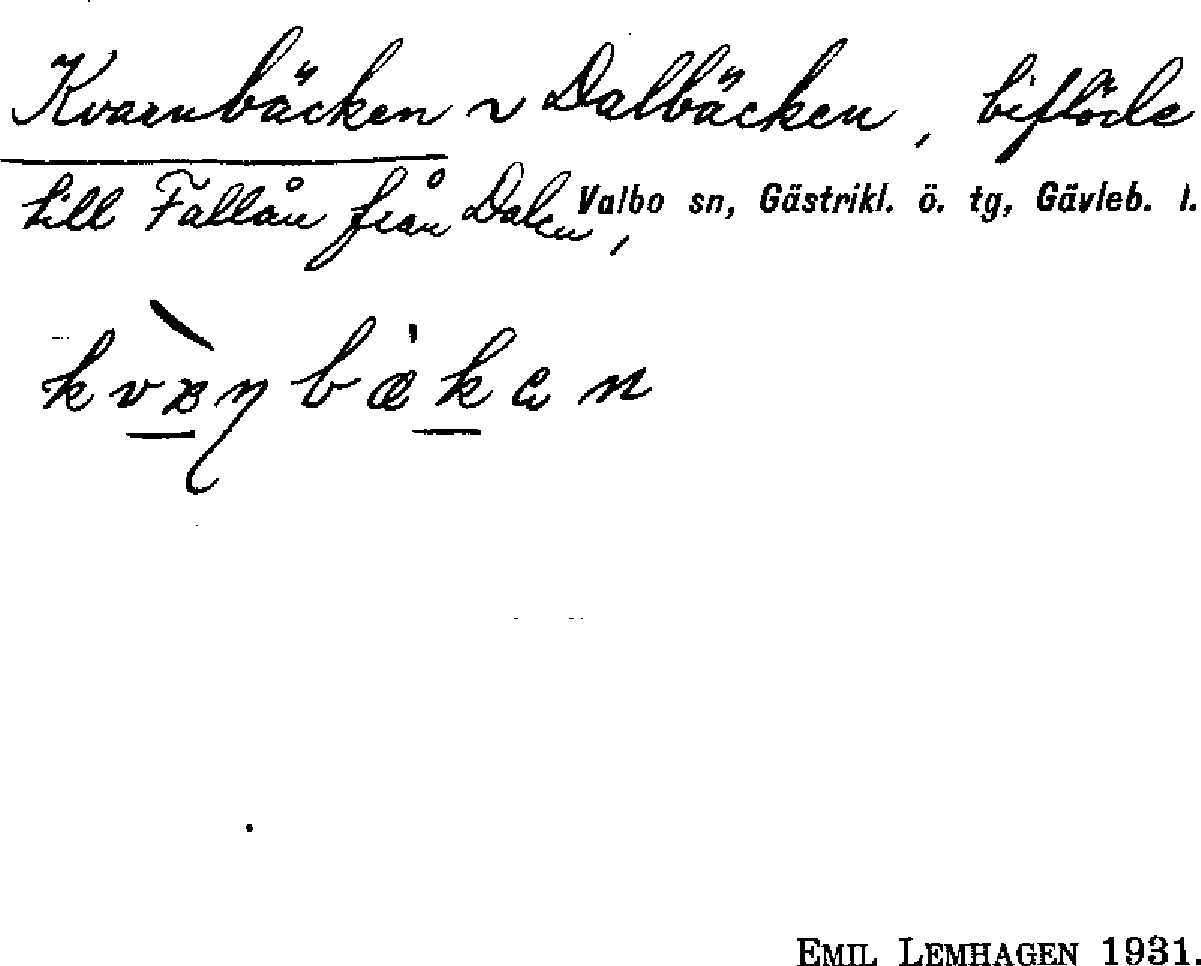 Kvarnbäcken ~ Dalbäcken, biflöde
till Fallån från Dalen, Valbo sn, Gästrikl. ö. tg, Gävleb. l.
EMIL LEMHAGEN 1931.